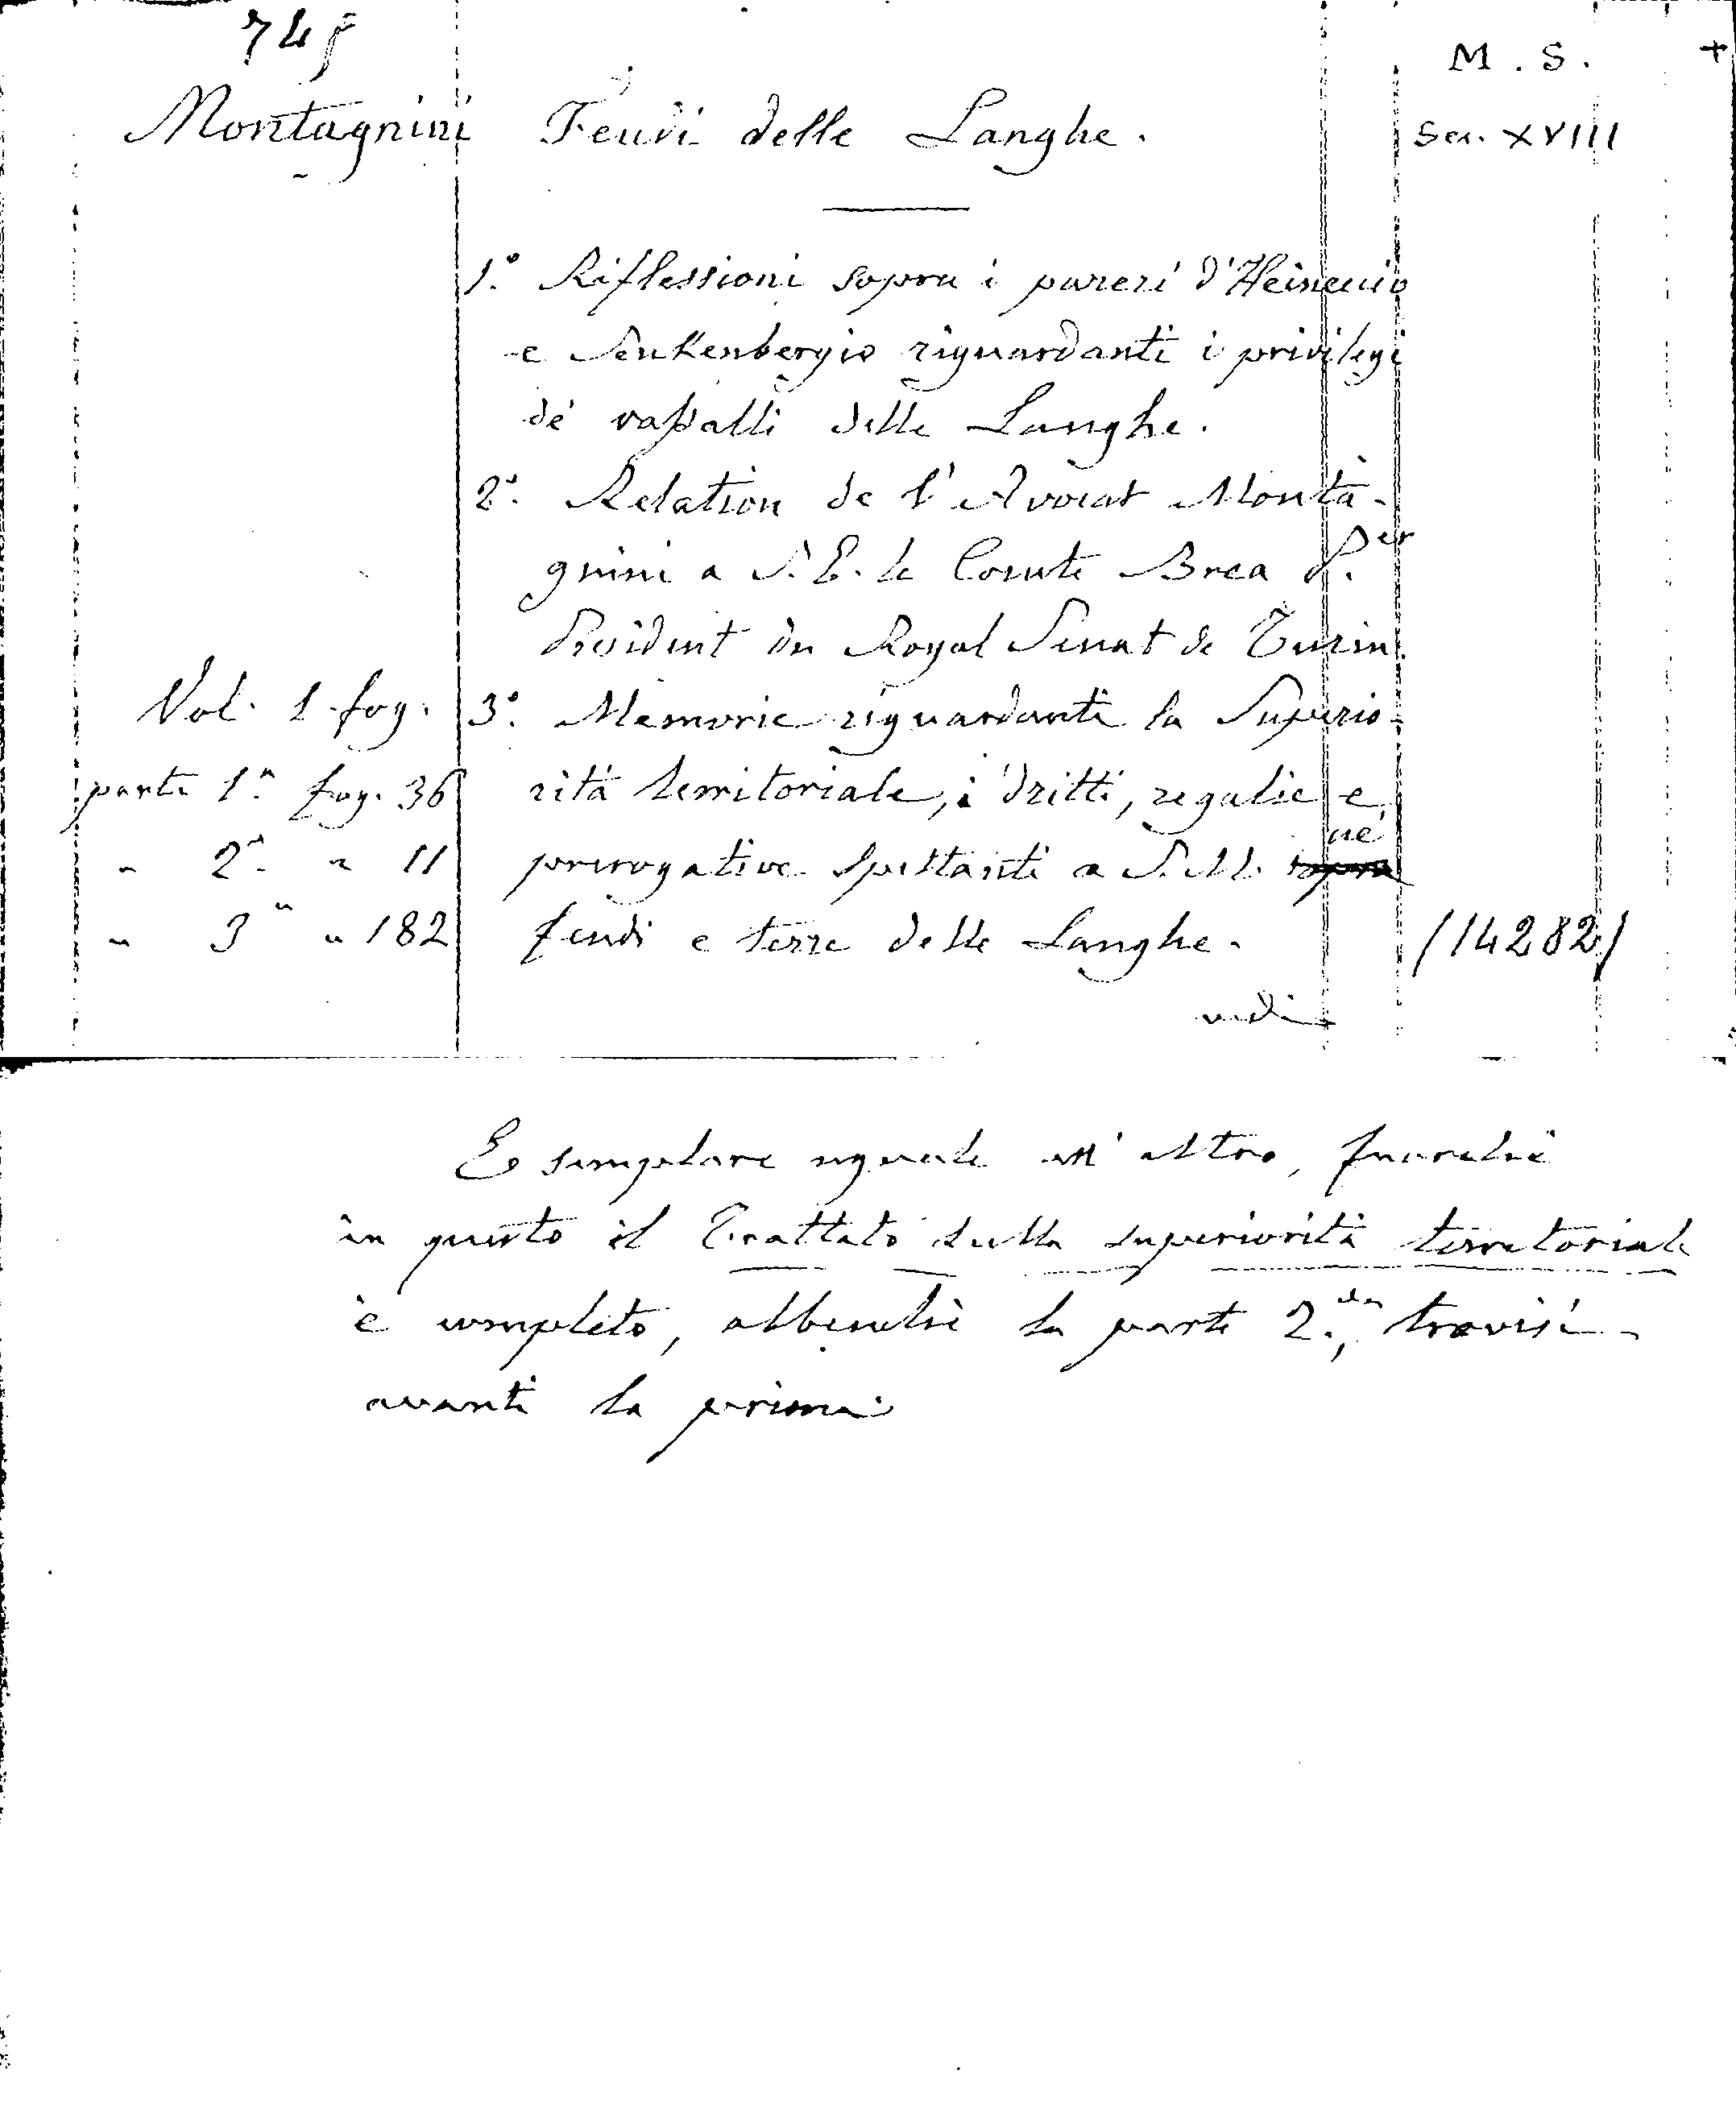 745
M. S. +
Montagnini Feudi delle Langhe. Sec. XVIII
1.° Riflessioni sopra i pareri d'Heineccio
e Senkenbergio riguardanti i privilegi
de' vassalli delle Langhe.
2.° Relation de l'Avocat Monta-
gnini a S. E. le Comte Brea P.er
President du Royal Senat de Turin.
Vol. 1 fog. 3.° Memorie riguardanti la Superio-
parte 1.a fog. 36 rità territoriale, i dritti, regalie e
" 2.a " 11 prerogative spettanti a S. M. sopra né
" 3.a " 182 feudi e terre delle Langhe. (14282)
vedi
Esemplare uguale all'altro, fuorchè
in questo il Trattato sulla superiorità territoriale
è completo, abbenchè la parte 2.da, trovisi
avanti la prima.